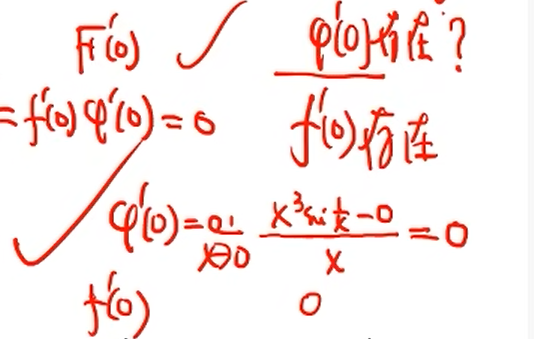 F'(0) ✓ φ'(0)存在?
= f'(0) φ'(0) = 0 f'(0)存在
✓ φ'(0) = lim x→0 (x³ sin 1/x - 0)/x = 0
f'(0) 0